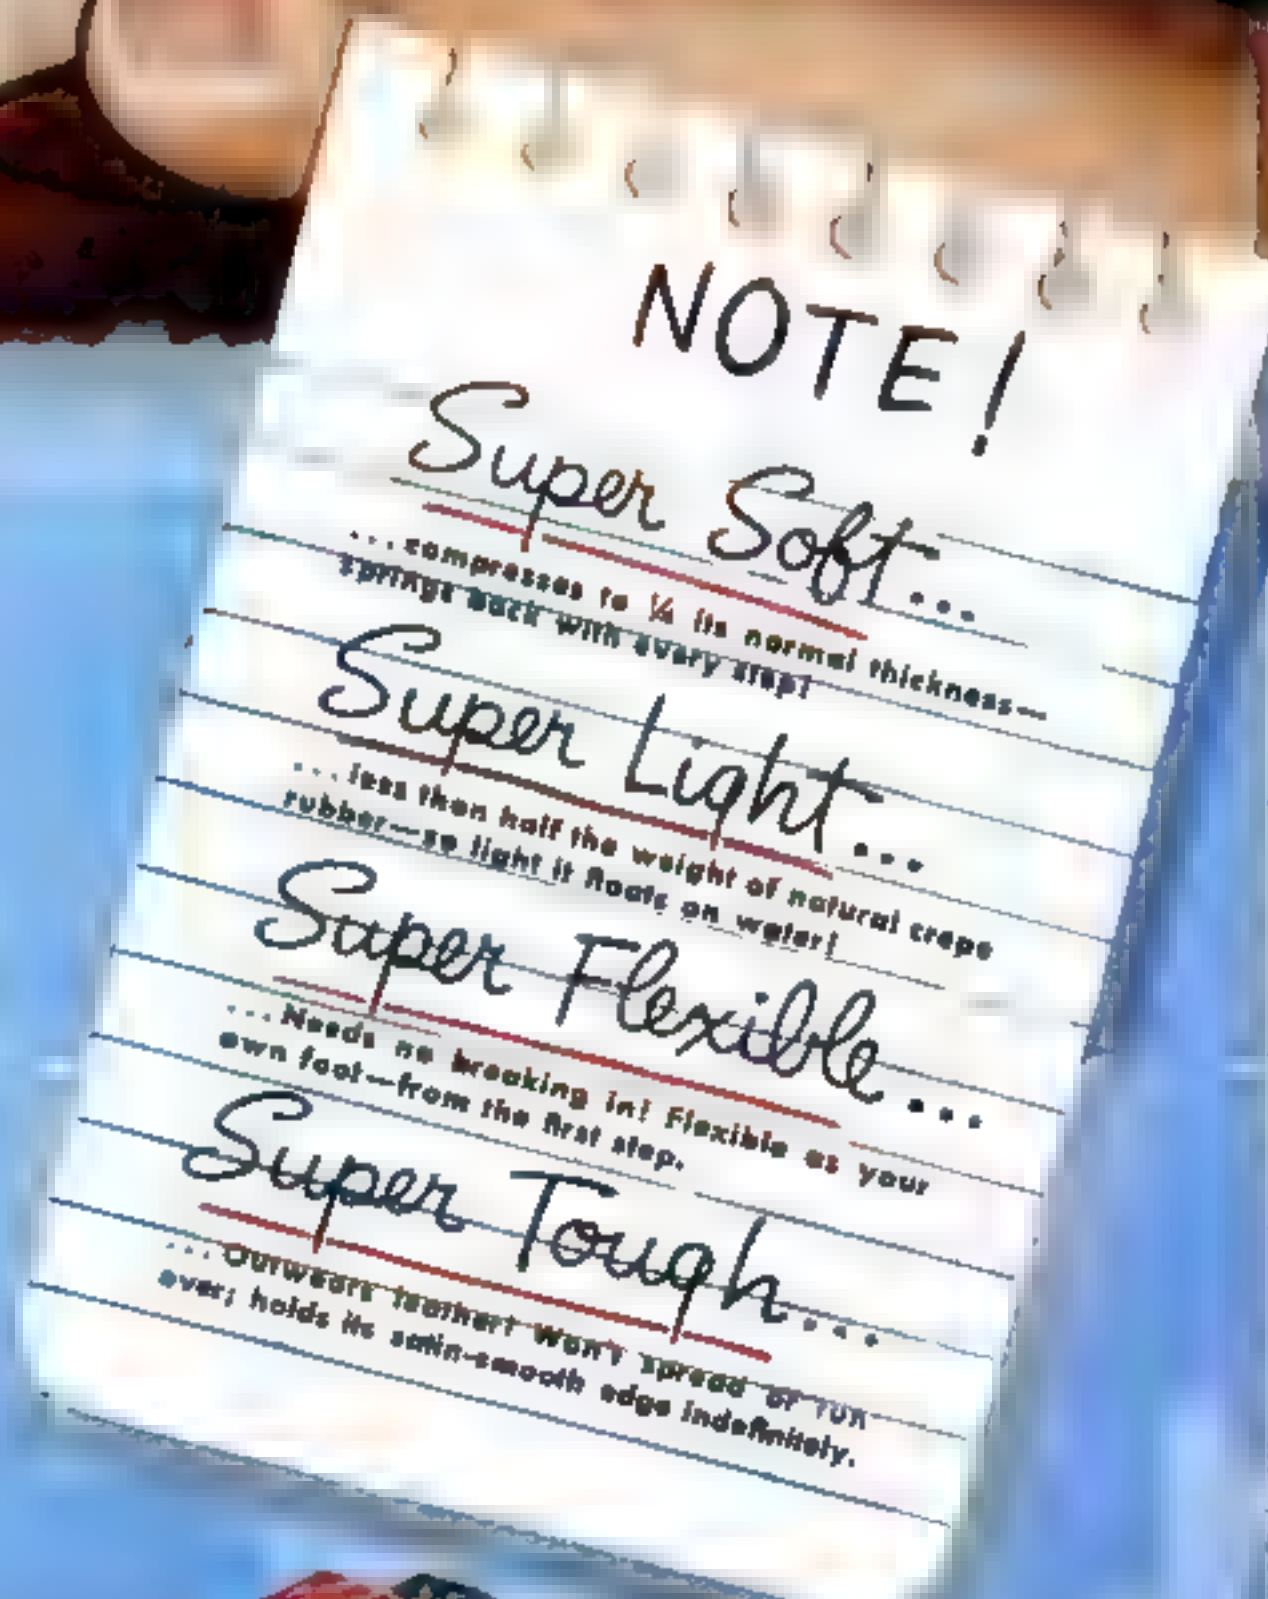 NOTE!
Super Soft...
...compresses to ¼ its normal thickness—
springs back with every step!
Super Light...
...less than half the weight of natural crepe
rubber—so light it floats on water!
Super Flexible...
...Needs no breaking in! Flexible as your
own foot—from the first step.
Super Tough...
...Outwears leather! Won't spread or run
over; holds its satin-smooth edge indefinitely.